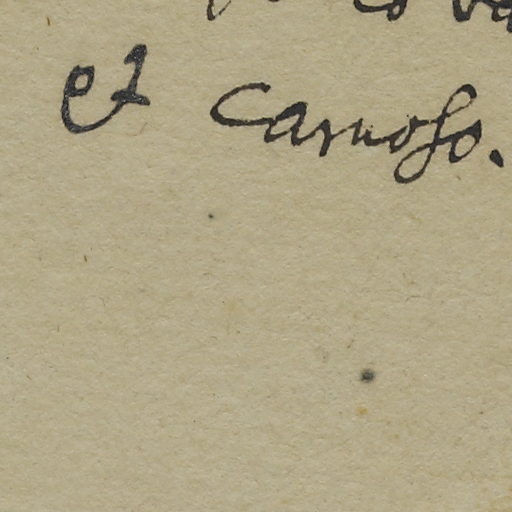 et carnoso.